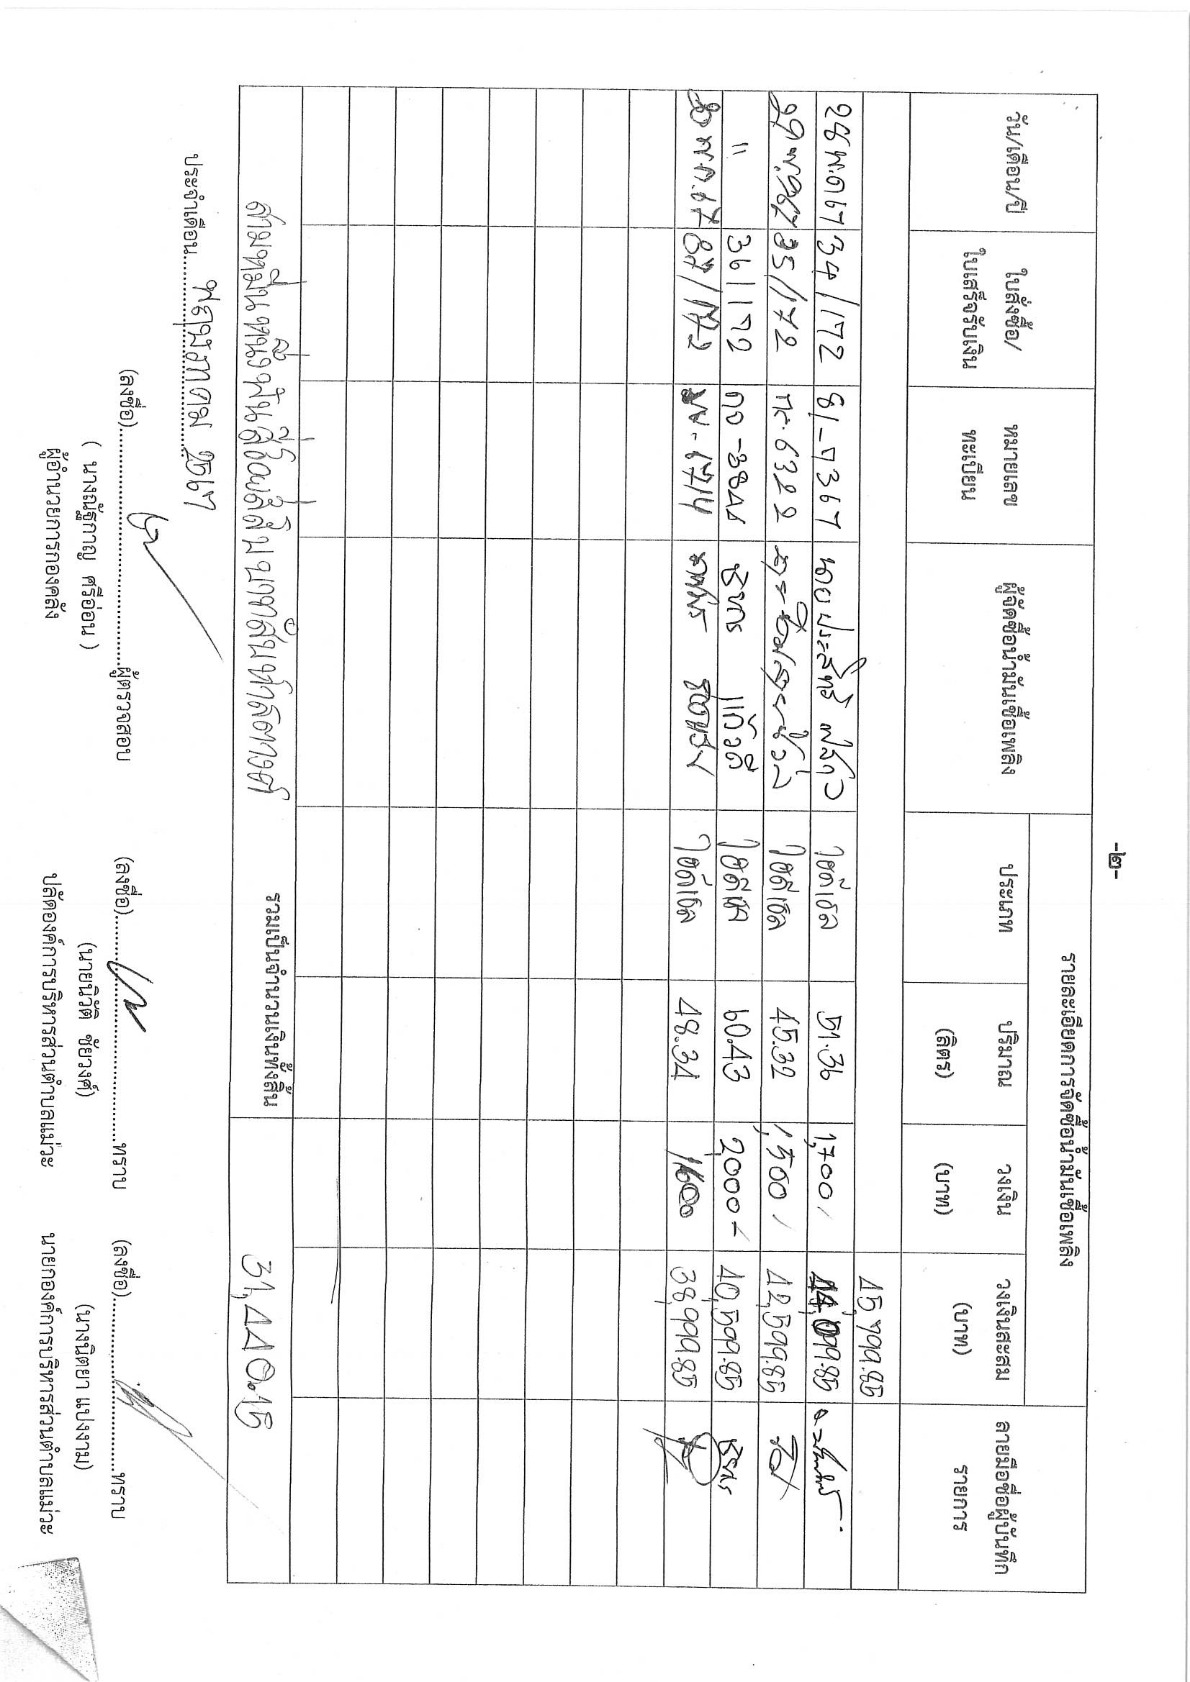 -๒-
วัน/เดือน/ปี ใบสั่งซื้อ/ใบเสร็จรับเงิน หมายเลขทะเบียน ผู้จัดซื้อน้ำมันเชื้อเพลิง รายละเอียดการจัดซื้อน้ำมันเชื้อเพลิง ลายมือชื่อผู้บันทึกรายการ
ประเภท ปริมาณ (ลิตร) วงเงิน (บาท) วงเงินสะสม (บาท)
45,799.85
28 พ.ค 67 34/172 81-7367 นายประสิทธิ์ ไฮดีเซล 51.36 1,700/ 44,099.85
35/172 6322 ไฮดีเซล 45.32 1,500/ 42,599.85
" 36/172 แก้วดี ไฮดีเซล 60.43 2,000- 40,599.85
พ.ค.67 37/172 ไฮดีเซล 48.34 1,600 38,999.85
สามหมื่นหนึ่งพันสี่ร้อยสี่สิบบาทสิบห้าสตางค์ รวมเป็นจำนวนเงินทั้งสิ้น 31,440.15
ประจำเดือน พฤษภาคม 2567
(ลงชื่อ)..........ผู้ตรวจสอบ (ลงชื่อ)..........ทราบ (ลงชื่อ)..........ทราบ
( นางณัฐกาญ ศรีอ่อน ) (นายนิวัติ ชัยวงค์) (นางนิตยา แปงงาม)
ผู้อำนวยการกองคลัง ปลัดองค์การบริหารส่วนตำบลแม่วะ นายกองค์การบริหารส่วนตำบลแม่วะ